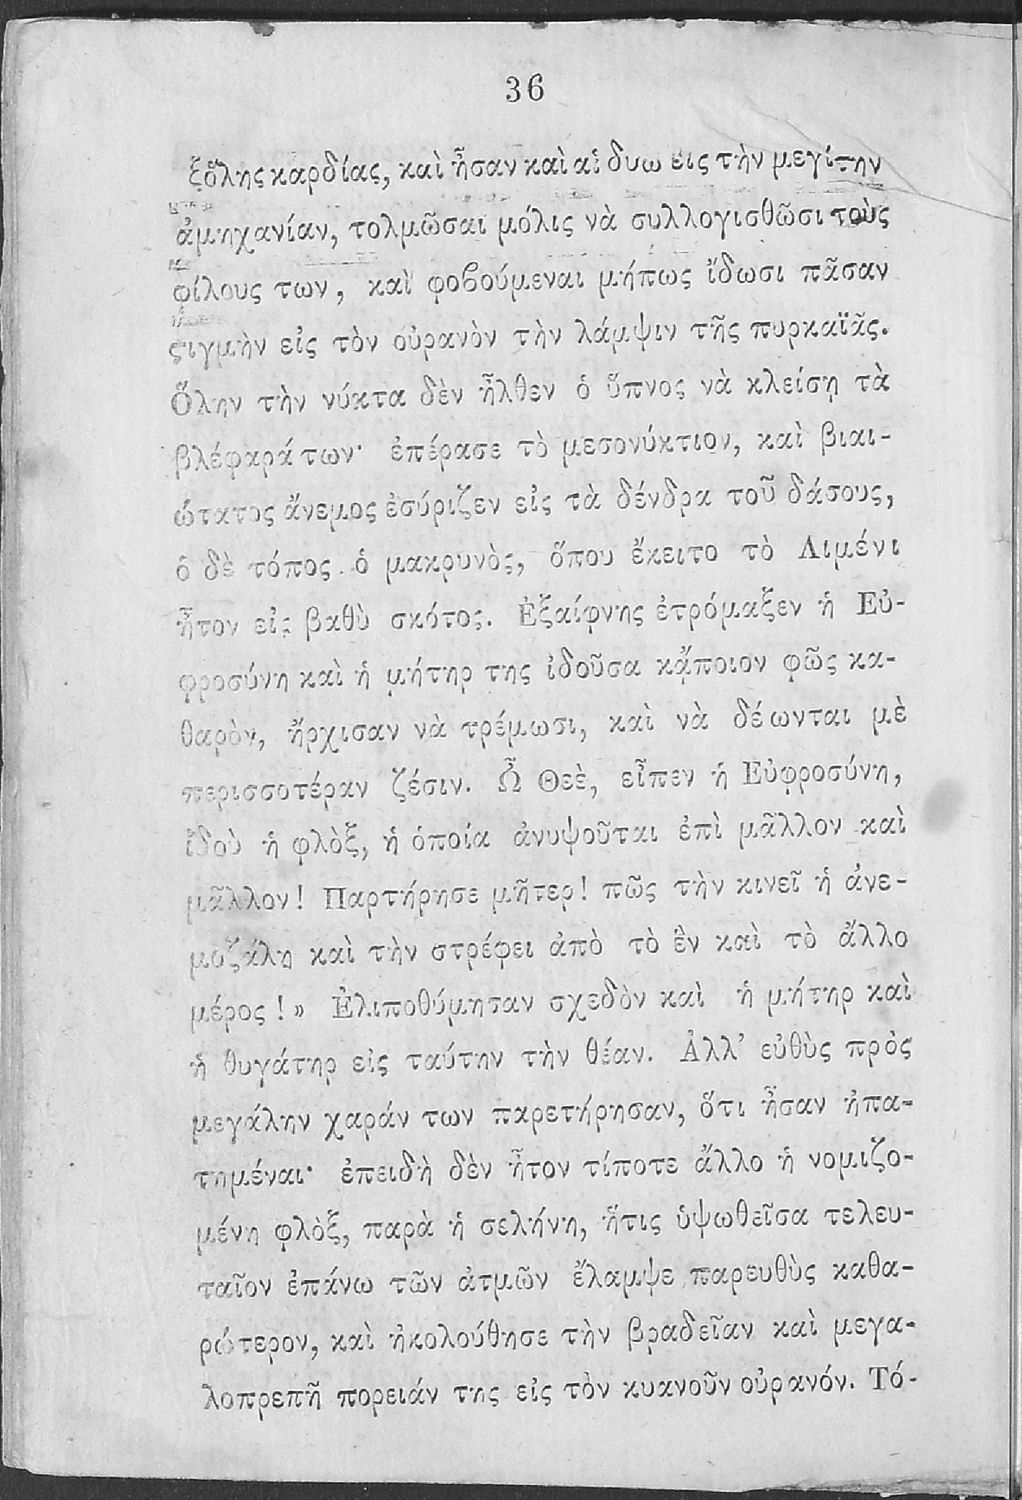 36
ξὅλης καρδίας, καὶ ἦσαν καὶ αἱ δυω εἰς τὴν μεγίςην
ἀμηχανίαν, τολμῶσαι μόλις νὰ συλλογισθῶσι τοὺς
φίλους των, καὶ φοβούμεναι μήπως ἴδωσι πᾶσαν
ςιγμὴν εἰς τὸν οὐρανὸν τὴν λάμψιν τῆς πυρκαϊᾶς.
Ὅλην τὴν νύκτα δὲν ἦλθεν ὁ ὕπνος νὰ κλείσῃ τὰ
βλέφαρά των· ἐπέρασε τὸ μεσονύκτιον, καὶ βιαι-
ώτατος ἄνεμος ἐσύριζεν εἰς τὰ δένδρα τοῦ δάσους,
ὁ δὲ τόπος ὁ μακρυνὸς, ὅπου ἔκειτο τὸ Λιμένι
ἦτον εἰς βαθὺ σκότος. Ἐξαίφνης ἐτρόμαξεν ἡ Εὐ-
φροσύνη καὶ ἡ μήτηρ της ἰδοῦσα κᾄποιον φῶς κα-
θαρὸν, ἤρχισαν νὰ τρέμωσι, καὶ νὰ δέωνται μὲ
περισσοτέραν ζέσιν. Ὦ Θεὲ, εἶπεν ἡ Εὐφροσύνη,
ἰδοὺ ἡ φλὸξ, ἡ ὁποία ἀνυψοῦται ἐπὶ μᾶλλον καὶ
μᾶλλον! Παρτήρησε μῆτερ! πῶς τὴν κινεῖ ἡ ἀνε-
μοζάλη καὶ τὴν στρέφει ἀπὸ τὸ ἓν καὶ τὸ ἄλλο
μέρος!» Ἐλιποθύμησαν σχεδὸν καὶ ἡ μήτηρ καὶ
ἡ θυγάτηρ εἰς ταύτην τὴν θέαν. Ἀλλ’ εὐθὺς πρὸς
μεγάλην χαράν των παρετήρησαν, ὅτι ἦσαν ἠπα-
τημέναι· ἐπειδὴ δὲν ἦτον τίποτε ἄλλο ἡ νομιζο-
μένη φλὸξ, παρὰ ἡ σελήνη, ἥτις ὑψωθεῖσα τελευ-
ταῖον ἐπάνω τῶν ἀτμῶν ἔλαμψε παρευθὺς καθα-
ρώτερον, καὶ ἠκολούθησε τὴν βραδεῖαν καὶ μεγα-
λοπρεπῆ πορειάν της εἰς τὸν κυανοῦν οὐρανόν. Τό-